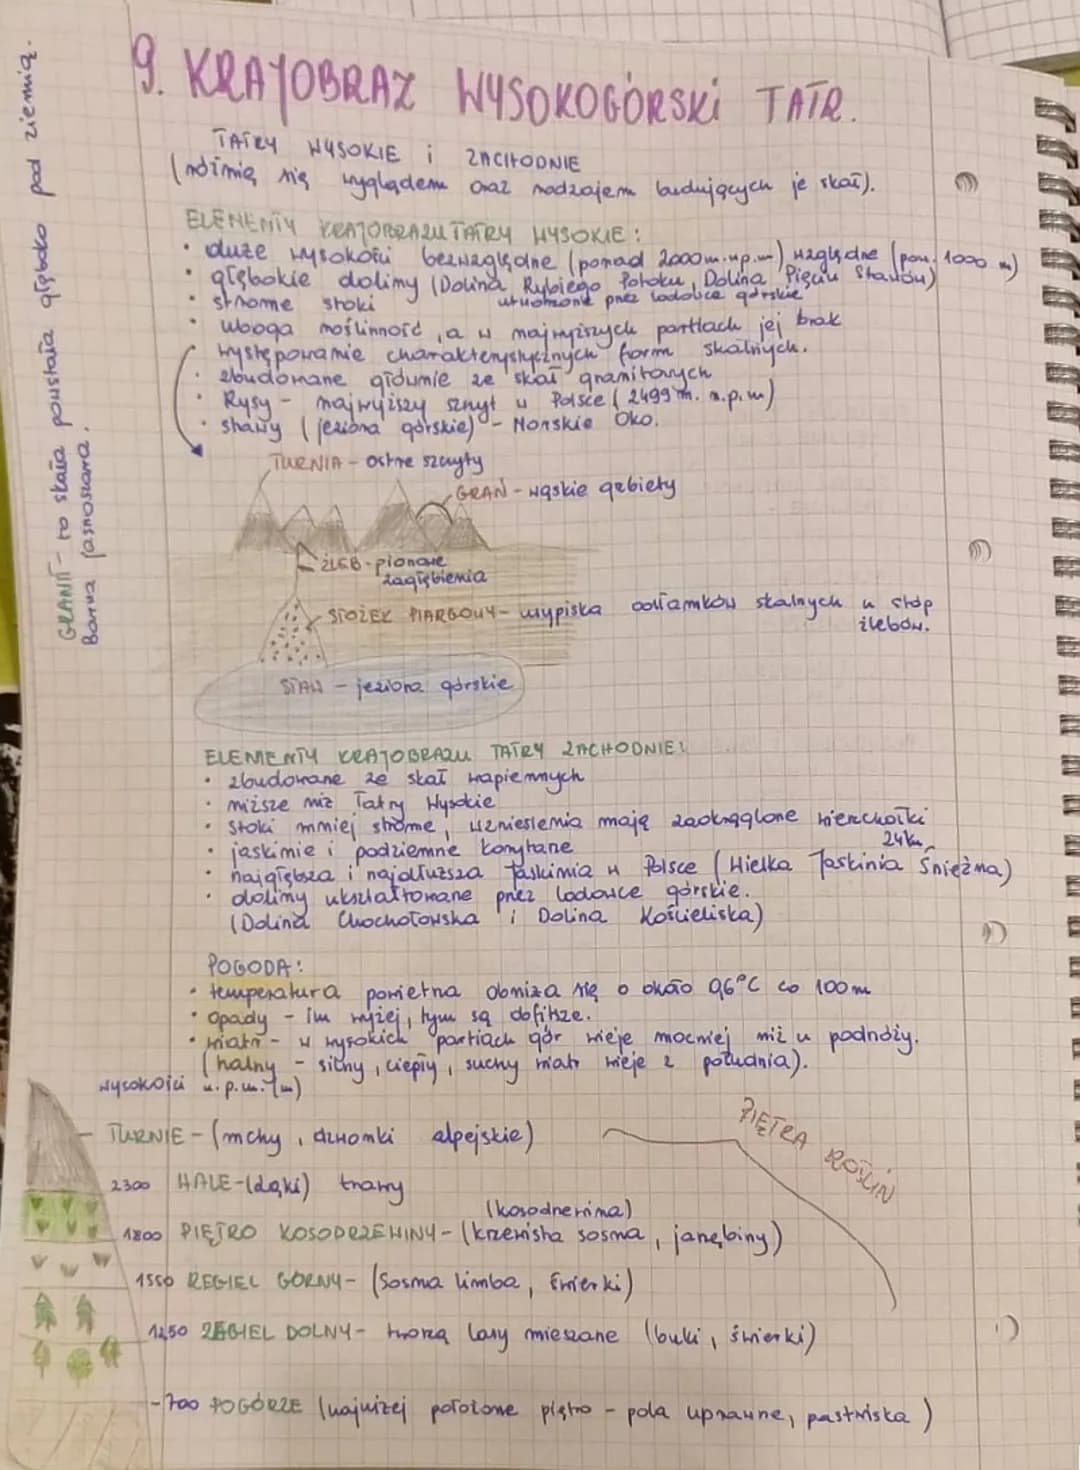 9. KRAJOBRAZ WYSOKOGÓRSKI TATR.
TATRY WYSOKIE i ZACHODNIE
(różnią się wyglądem oraz rodzajem budujących je skał).
ELEMENTY KRAJOBRAZU TATRY WYSOKIE:
• duże wysokości bezwzględne (ponad 2000 m.n.p.m) względne (pon. 1000 m)
• głębokie doliny (Dolina Rybiego Potoku, Dolina Pięciu Stawów)
utworzone przez lodowce górskie
• strome stoki
• uboga roślinność, a w najwyższych partiach jej brak
• występowanie charakterystycznych form skalnych.
• zbudowane głównie ze skał granitowych
• Rysy - najwyższy szczyt w Polsce (2499 m. n.p.m)
• stawy (jeziora górskie) - Morskie Oko.
GRANIT - to skała powstała głęboko pod ziemią.
Barwa jasnoszara.
TURNIA - ostre szczyty
GRAŃ - wąskie grzbiety
ŻLEB - pionowe
zagłębienia
STOŻEK PIARGOWY - usypiska odłamków skalnych u stóp
żlebów.
STAW - jeziora górskie
ELEMENTY KRAJOBRAZU TATRY ZACHODNIE:
• zbudowane ze skał wapiennych
• niższe niż Tatry Wysokie
• stoki mniej strome, wzniesienia mają zaokrąglone wierzchołki
• jaskinie i podziemne korytarze
24km
• najgłębsza i najdłuższa jaskinia w Polsce (Wielka Jaskinia Śnieżna)
• doliny ukształtowane przez lodowce górskie.
(Dolina Chochołowska i Dolina Kościeliska)
POGODA:
• temperatura powietrza obniża się o około 0,6°C co 100 m
• opady - im wyżej, tym są obfitsze.
• wiatr - w wysokich partiach gór wieje mocniej niż u podnóży.
(halny - silny, ciepły, suchy wiatr wieje z południa).
wysokości n.p.m. (m)
PIĘTRA ROŚLIN
TURNIE - (mchy, dzwonki alpejskie)
2300 HALE - (łąki) trawy
(kosodrzewina)
1800 PIĘTRO KOSODRZEWINY - (krzewista sosna, jarzębiny)
1550 REGIEL GÓRNY - (Sosna limba, świerki)
1250 REGIEL DOLNY - tworzą lasy mieszane (buki, świerki)
- 700 POGÓRZE (najniżej położone piętro - pola uprawne, pastwiska)